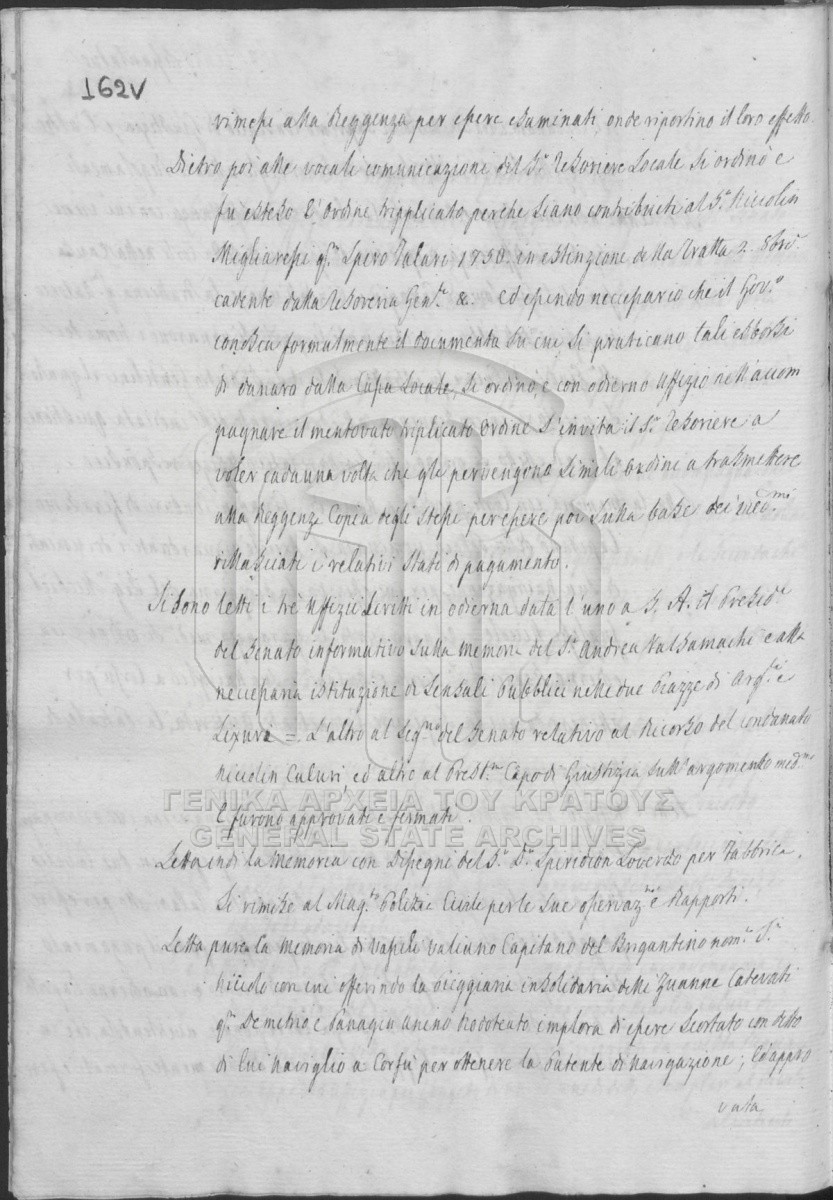 162V
rimessi alla Reggenza per essere esaminati onde riportino il loro effetto.
Dietro poi alle vocali comunicazione del Sr. Tesoriere Locale si ordinò e
fu esteso l'ordine tripplicato perche siano contribuiti al Sr. Niccolin
Migliaressi qm. Spiro Talari 1750. in estinzione della Tratta 2. 8bre.
cadente dalla Tesoreria Genle. &. ed essendo neccessario che il Govo.
conosca formalmente il documento su cui si praticano tali esborsi
di danaro dalla Cassa Locale, si ordinò, e con odierno Uffizio nell'accom
pagnare il mentovato triplicato ordine s'invita il Sr. Tesoriere a
voler cadauna volta che gli pervengono simili ordini a trasmettere
alla Reggenza Copia degli stessi per essere poi sulla base dei medmi.
rillasciati i relativi Stati di pagamento.
Si sono letti i trè Uffizii scritti in odierna data l'uno a S. A. il Preside.
del Senato informativo sulla memoria del Sr. Andrea Valsamachi e alla
neccessaria istituzione di Sensali Pubblici nelle due Piazze di Argli. e
Lixuri = L'altro al Segro. del Senato relativo al Ricorso del condanato
Niccolin Culuri, ed altro al Prestm. Capo di Giustizia sull'argomento medmo.
e furono approvati e firmati.
Letta indi la Memoria con Dissegni del Sr. Dr. Speridion Loverdo per Fabbrica.
Si rimise al Mago. Polizia Civile per le sue osservazni. e Rapporti.
Letta pure la memoria di Vassili Valiano Capitano del Brigantino nomo. Sn.
Niccolò con cui offerindo la pieggiaria insolidaria delli Zuanne Catevati
qm. Demetrio e Panagin Aneno implora di essere scortato con detto
di lui naviglio a Corfù per ottenere la Patente di navigazione; ed appro
vata
ΓΕΝΙΚΑ ΑΡΧΕΙΑ ΤΟΥ ΚΡΑΤΟΥΣ
GENERAL STATE ARCHIVES